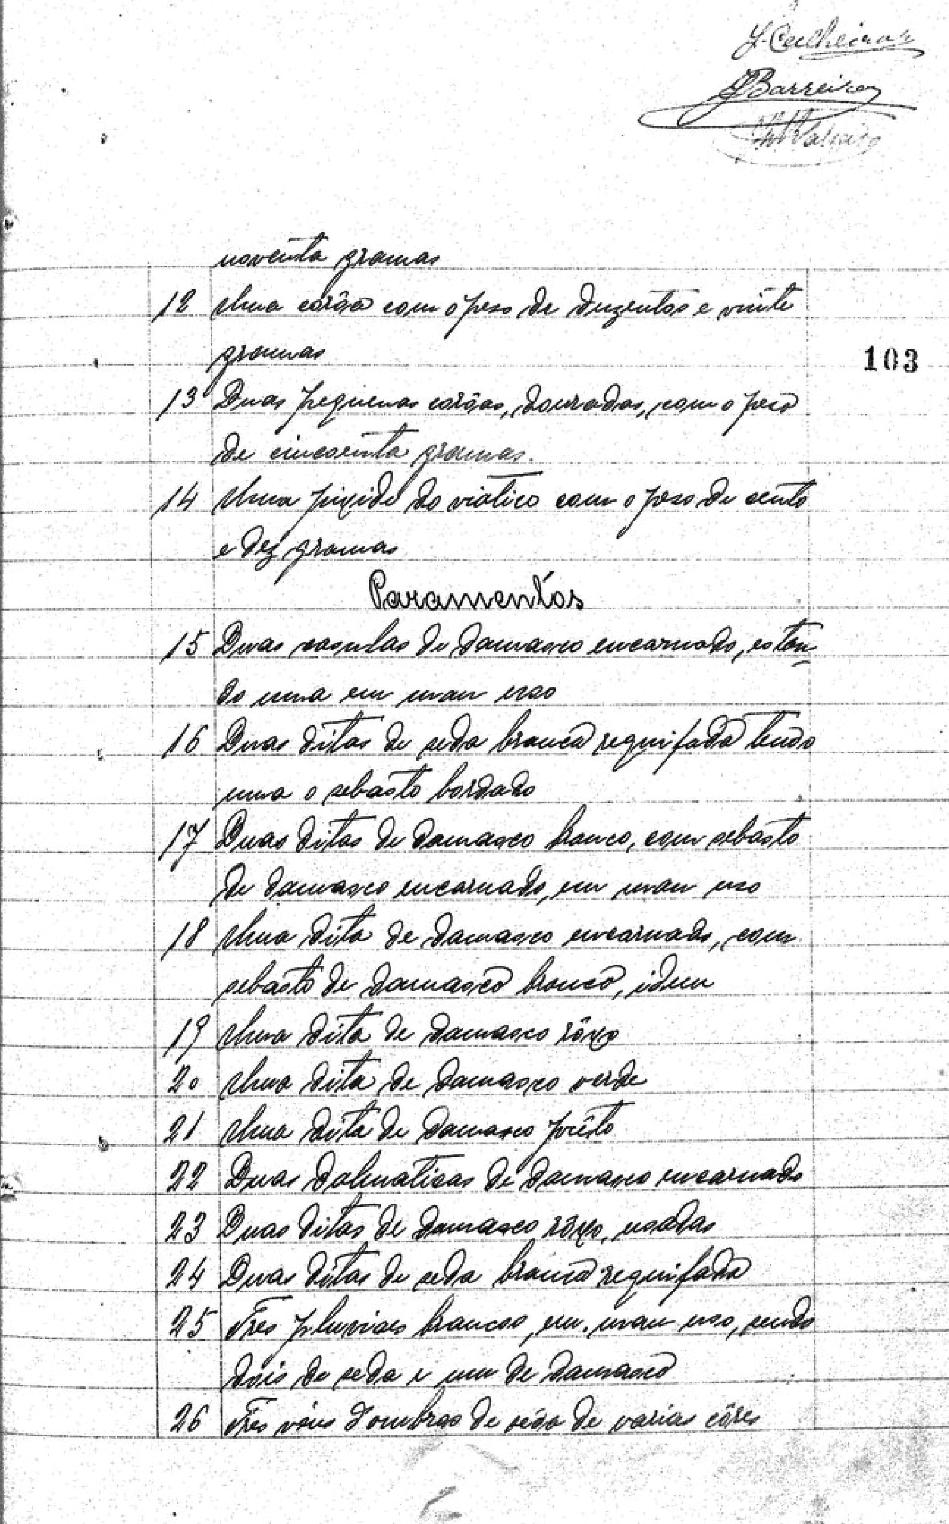 J. Calheiros
J Barreiros
noventa gramas
12 Uma corôa com o peso de duzentos e vinte
gramas
103
13 Duas pequenas corôas, douradas, com o peso
de cincoenta gramas.
14 Uma pixide do viatico com o peso de cento
e dez gramas
Paramentos
15 Duas casulas de damasco encarnado, estan-
do uma em mau uso
16 Duas ditas de seda branca requifada tendo
uma o sebasto bordado
17 Duas ditas de damasco branco, com sebasto
de damasco encarnado, em mau uso
18 Uma dita de damasco encarnado, com
sebasto de damasco branco, idem
19 Uma dita de damasco rôxo
20 Uma dita de damasco verde
21 Uma dita de damasco prêto
22 Duas dalmaticas de damasco encarnado
23 Duas ditas de damasco rôxo, usadas
24 Duas ditas de seda branca requifada
25 Tres pluviaes brancos, em mau uso, sendo
dois de seda e um de damasco
26 Tres véus d'ombros de sêda de varias côres